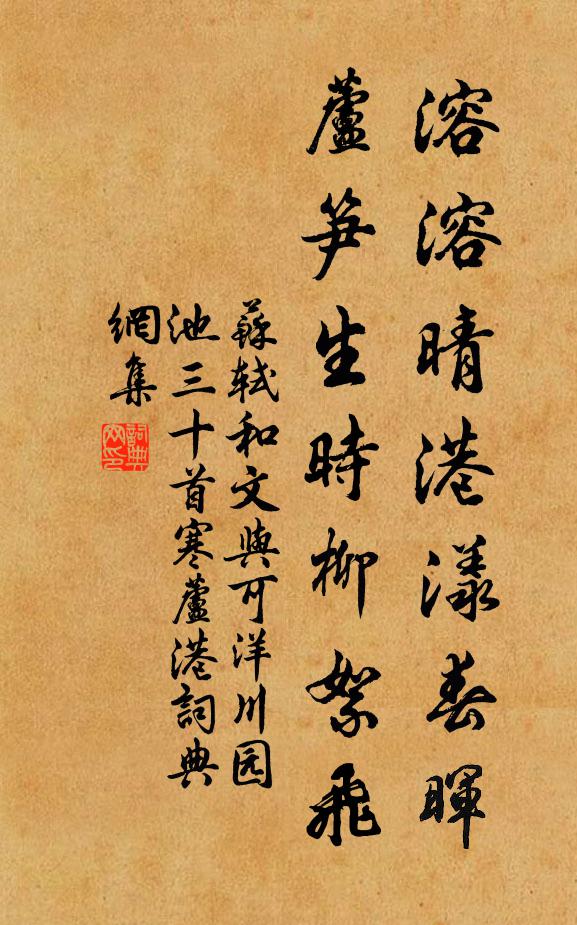 溶溶晴港漾春暉
蘆笋生時柳絮飛
蘇軾和文與可洋川园
池三十首寒蘆港詞典
網集
詞典
网印